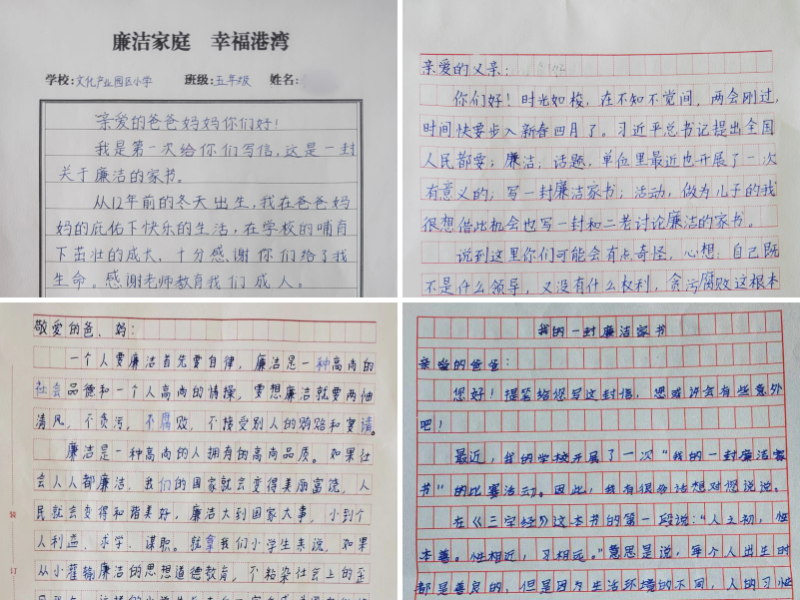 廉洁家庭 幸福港湾
学校:文化产业园区小学 班级:五年级 姓名:
亲爱的爸爸妈妈你们好!
我是第一次给你们写信,这是一封
关于廉洁的家书。
从12年前的冬天出生,我在爸爸妈
妈的庇佑下快乐的生活,在学校的哺育
下茁壮的成长,十分感谢你们给了我
生命。感谢老师教育我们成人。
亲爱的父亲:
你们好!时光如梭,在不知不觉间,两会刚过,
时间快要步入新春四月了。习近平总书记提出全国
人民都要;廉洁;话题,单位里最近也开展了一次
有意义的;写一封廉洁家书;活动,做为儿子的我
很想借此机会也写一封和二老讨论廉洁的家书。
说到这里你们可能会有点奇怪,心想:自己既
不是什么领导,又没有什么权利,贪污腐败这根本
敬爱的爸、妈:
一个人要廉洁首先要自律,廉洁是一种高尚的
社会品德和一个人高尚的情操,要想廉洁就要两袖
清风,不贪污,不腐败,不接受别人的贿赂和宴请。
廉洁是一种高尚的人拥有的高尚品质。如果社
会人人都廉洁,我们的国家就会变得美丽富饶,人
民就会变得和谐美好,廉洁大到国家大事,小到个
人利益、求学、谋职。就拿我们小学生来说,如果
从小灌输廉洁的思想道德教育,不粘染社会上的歪
装
订
我的一封廉洁家书
亲爱的爸爸:
您好!提笔给您写这封信,您或许会有些意外
吧!
最近,我的学校开展了一次“我的一封廉洁家
书”的比赛活动。因此,我有很多话想对您说说。
在《三字经》这本书的第一段说:“人之初,性
本善。性相近,习相远。”意思是说,每个人出生时
都是善良的,但是因为生活环境的不同,人的习性